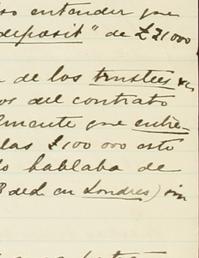 so entender que
deposit" de £71000
de los trustees
os del contrato
lmente que entre-
las £100 000 esto
lo hablaba de
ded en Londres) sin